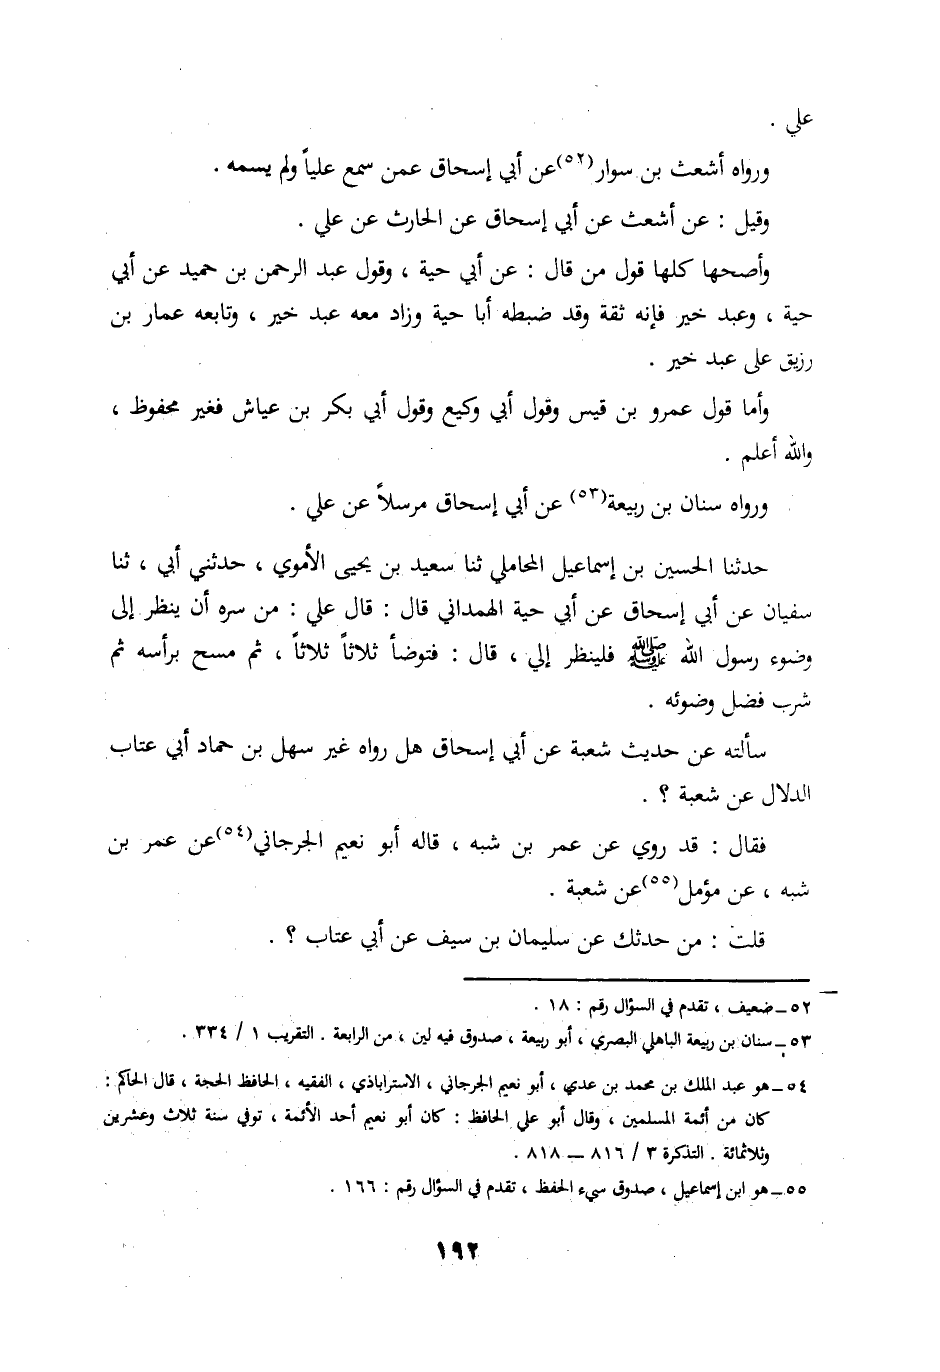 علي .
ورواه أشعث بن سوار(٥٢)عن أبي إسحاق عمن سمع علياً ولم يسمه .
وقيل : عن أشعث عن أبي إسحاق عن الحارث عن علي .
وأصحها كلها قول من قال : عن أبي حية ، وقول عبد الرحمن بن حميد عن أبي
حية ، وعبد خير فإنه ثقة وقد ضبطه أبا حية وزاد معه عبد خير ، وتابعه عمار بن
رزيق على عبد خير .
وأما قول عمرو بن قيس وقول أبي وكيع وقول أبي بكر بن عياش فغير محفوظ ،
والله أعلم .
ورواه سنان بن ربيعة(٥٣) عن أبي إسحاق مرسلاً عن علي .
حدثنا الحسين بن إسماعيل المحاملي ثنا سعيد بن يحيى الأموي ، حدثني أبي ، ثنا
سفيان عن أبي إسحاق عن أبي حية الهمداني قال : قال علي : من سره أن ينظر إلى
وضوء رسول الله ﷺ فلينظر إلي ، قال : فتوضأ ثلاثاً ثلاثاً ، ثم مسح برأسه ثم
شرب فضل وضوئه .
سألته عن حديث شعبة عن أبي إسحاق هل رواه غير سهل بن حماد أبي عتاب
الدلال عن شعبة ؟ .
فقال : قد روي عن عمر بن شبه ، قاله أبو نعيم الجرجاني(٥٤)عن عمر بن
شبه ، عن مؤمل(٥٥)عن شعبة .
قلت : من حدثك عن سليمان بن سيف عن أبي عتاب ؟ .
٥٢ــ ضعيف ، تقدم في السؤال رقم : ١٨ .
٥٣ــ سنان بن ربيعة الباهلي البصري ، أبو ربيعة ، صدوق فيه لين ، من الرابعة . التقريب ١ / ٣٣٤ .
٥٤ــ هو عبد الملك بن محمد بن عدي ، أبو نعيم الجرجاني ، الاستراباذي ، الفقيه ، الحافظ الحجة ، قال الحاكم :
كان من أئمة المسلمين ، وقال أبو علي الحافظ : كان أبو نعيم أحد الأئمة ، توفي سنة ثلاث وعشرين
وثلاثمائة . التذكرة ٣ / ٨١٦ ــ ٨١٨ .
٥٥ــ هو ابن إسماعيل ، صدوق سيء الحفظ ، تقدم في السؤال رقم : ١٦٦ .
١٩٢